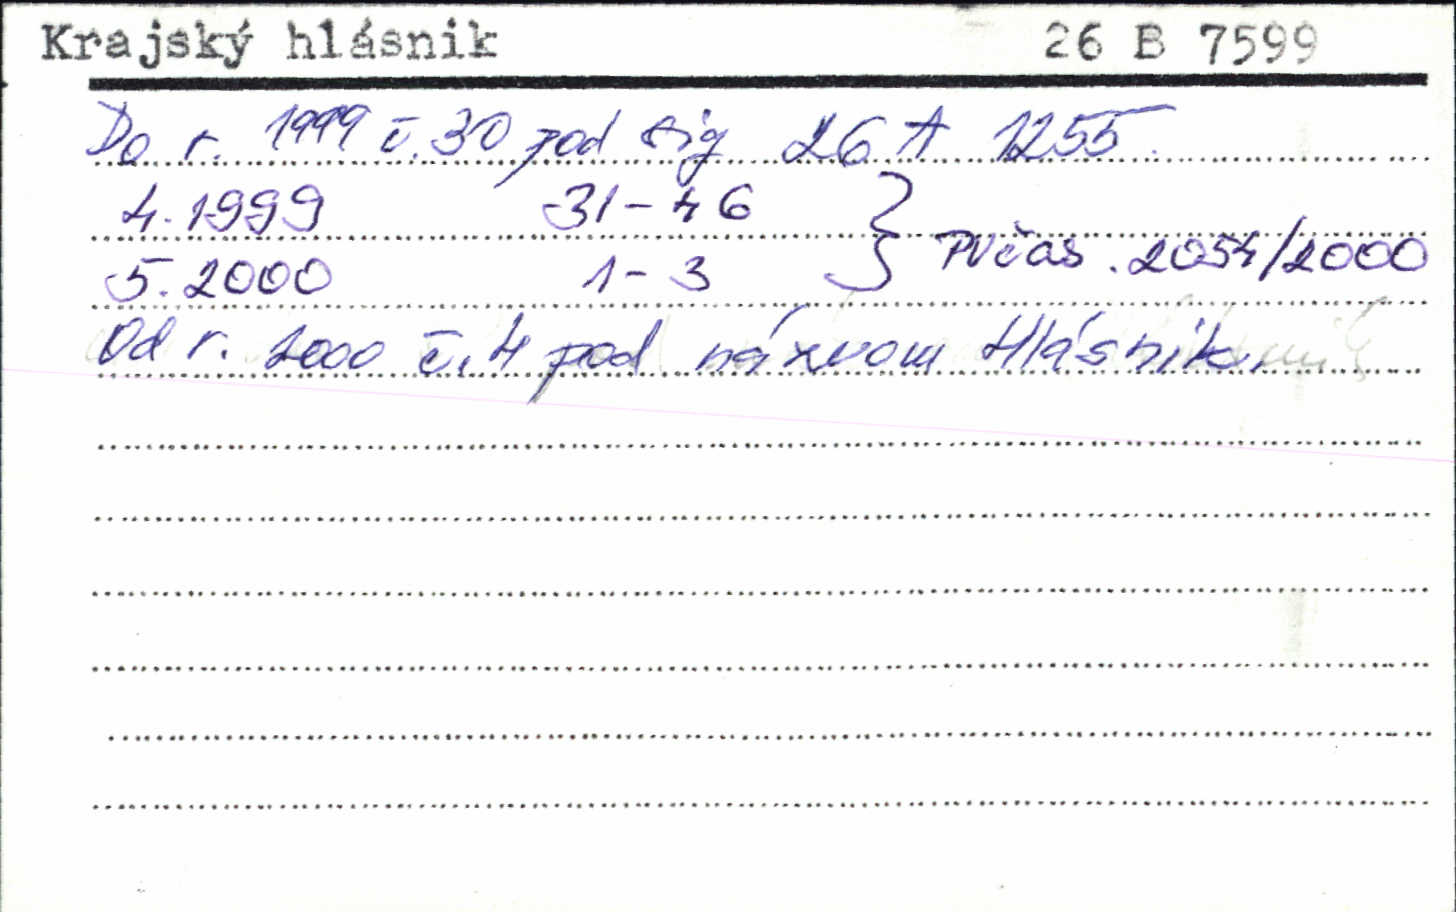 Krajský hlásnik 26 B 7599
Do r. 1999 č. 30 pod sig 26 A 1255.
4. 1999 31-46
5. 2000 1-3 } PVčas. 2054/2000
Od r. 2000 č. 4 pod názvom Hlásnik.